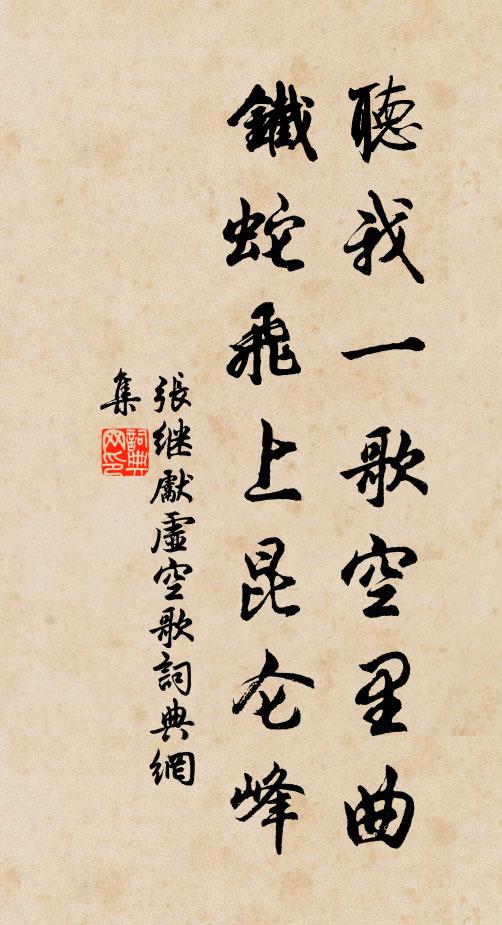 聽我一歌空里曲
鐵蛇飛上昆仑峰
張继獻虛空歌詞典網
集
詞典网印